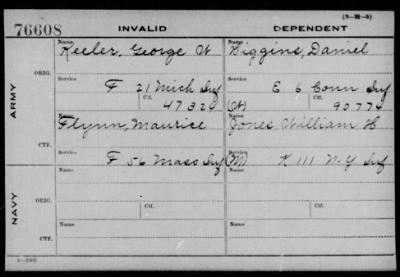 (3-M-5)
76608 INVALID DEPENDENT
Name Name
Keeler, George W Biggins, Daniel
ORIG.
Service Service
F 21 Mich Inf E 6 Conn Inf
Ctf. Ctf.
47324 (W) 90774
ARMY
Name Name
Flynn, Maurice Jones, William H
CTF.
Service Service
F 56 Mass Inf (M) K 111 N.Y Inf
Name Name
ORIG.
Service Service
Ctf. Ctf.
NAVY
Name Name
CTF.